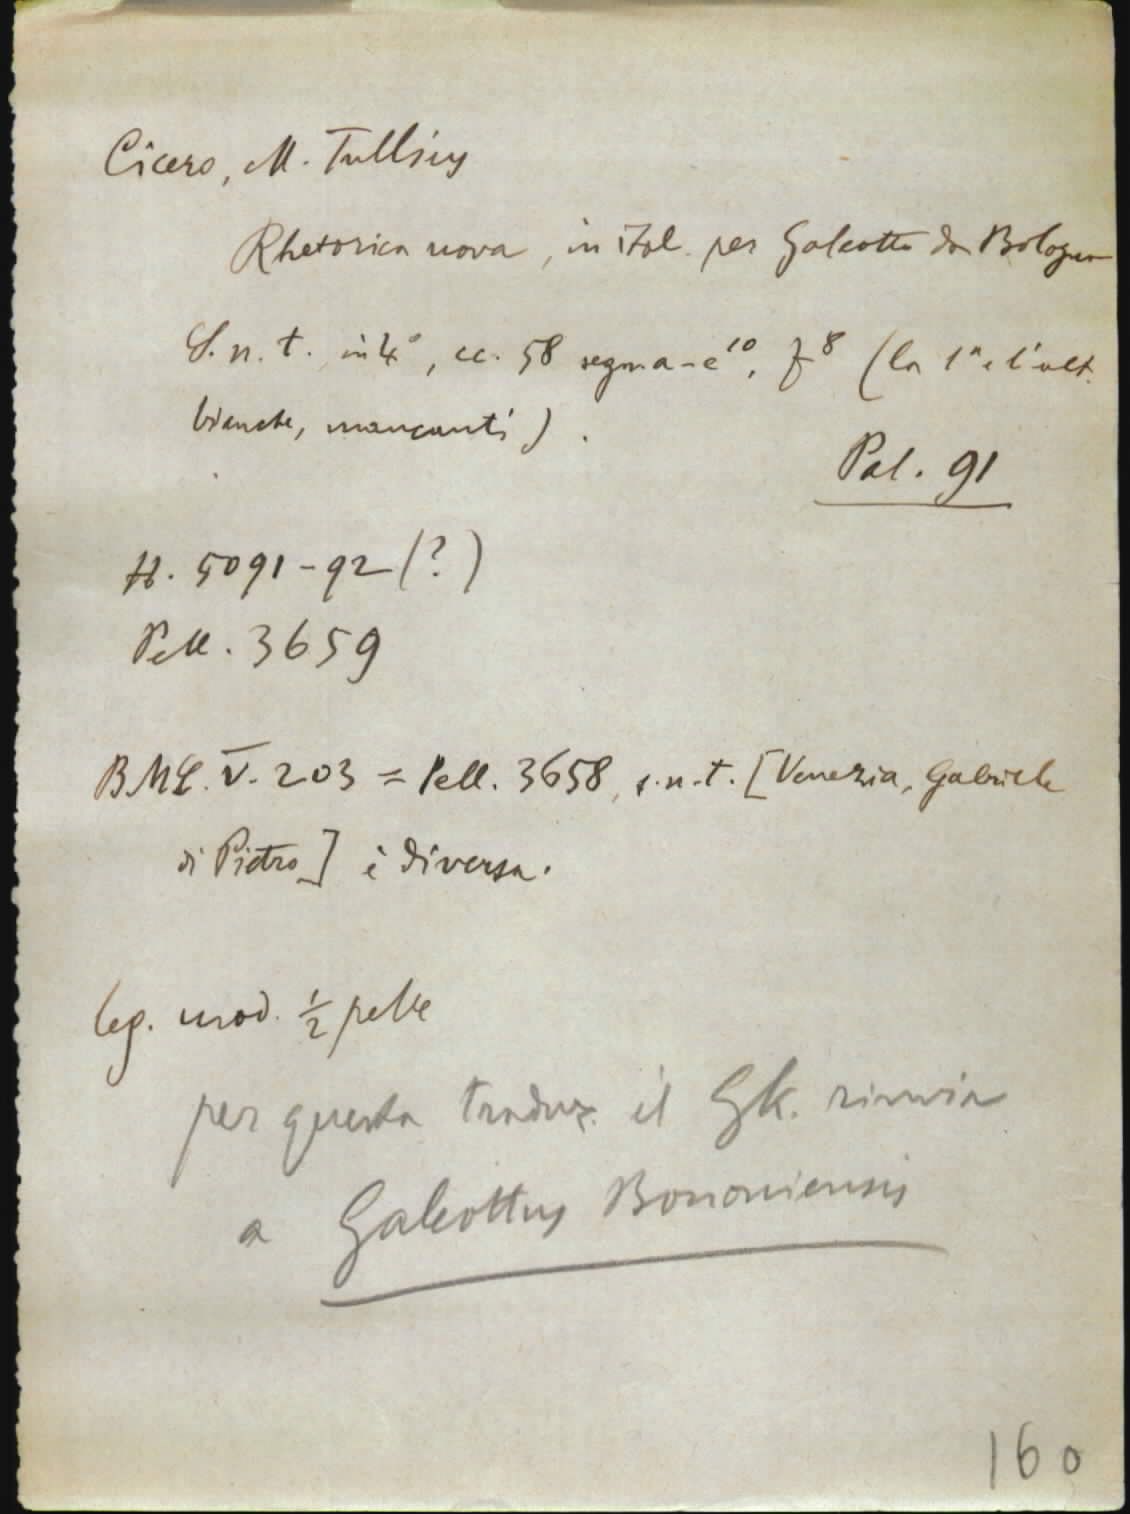 Cicero, M. Tullius
Rhetorica nova, in ital. per Galeotto da Bologna
S. n. t. in 4°, cc. 58 segn. a-e¹⁰, f⁸ (la 1ª e l'ult.
bianche, mancanti).
Pal. 91
H. 5091-92 (?)
Pell. 3659
BMC. V. 203 = Pell. 3658, s.n.t. [Venezia, Gabriele
di Pietro] è diversa.
leg. mod. ½ pelle
per questa traduz. il GK. rinvia
a Galeottus Bononiensis
160